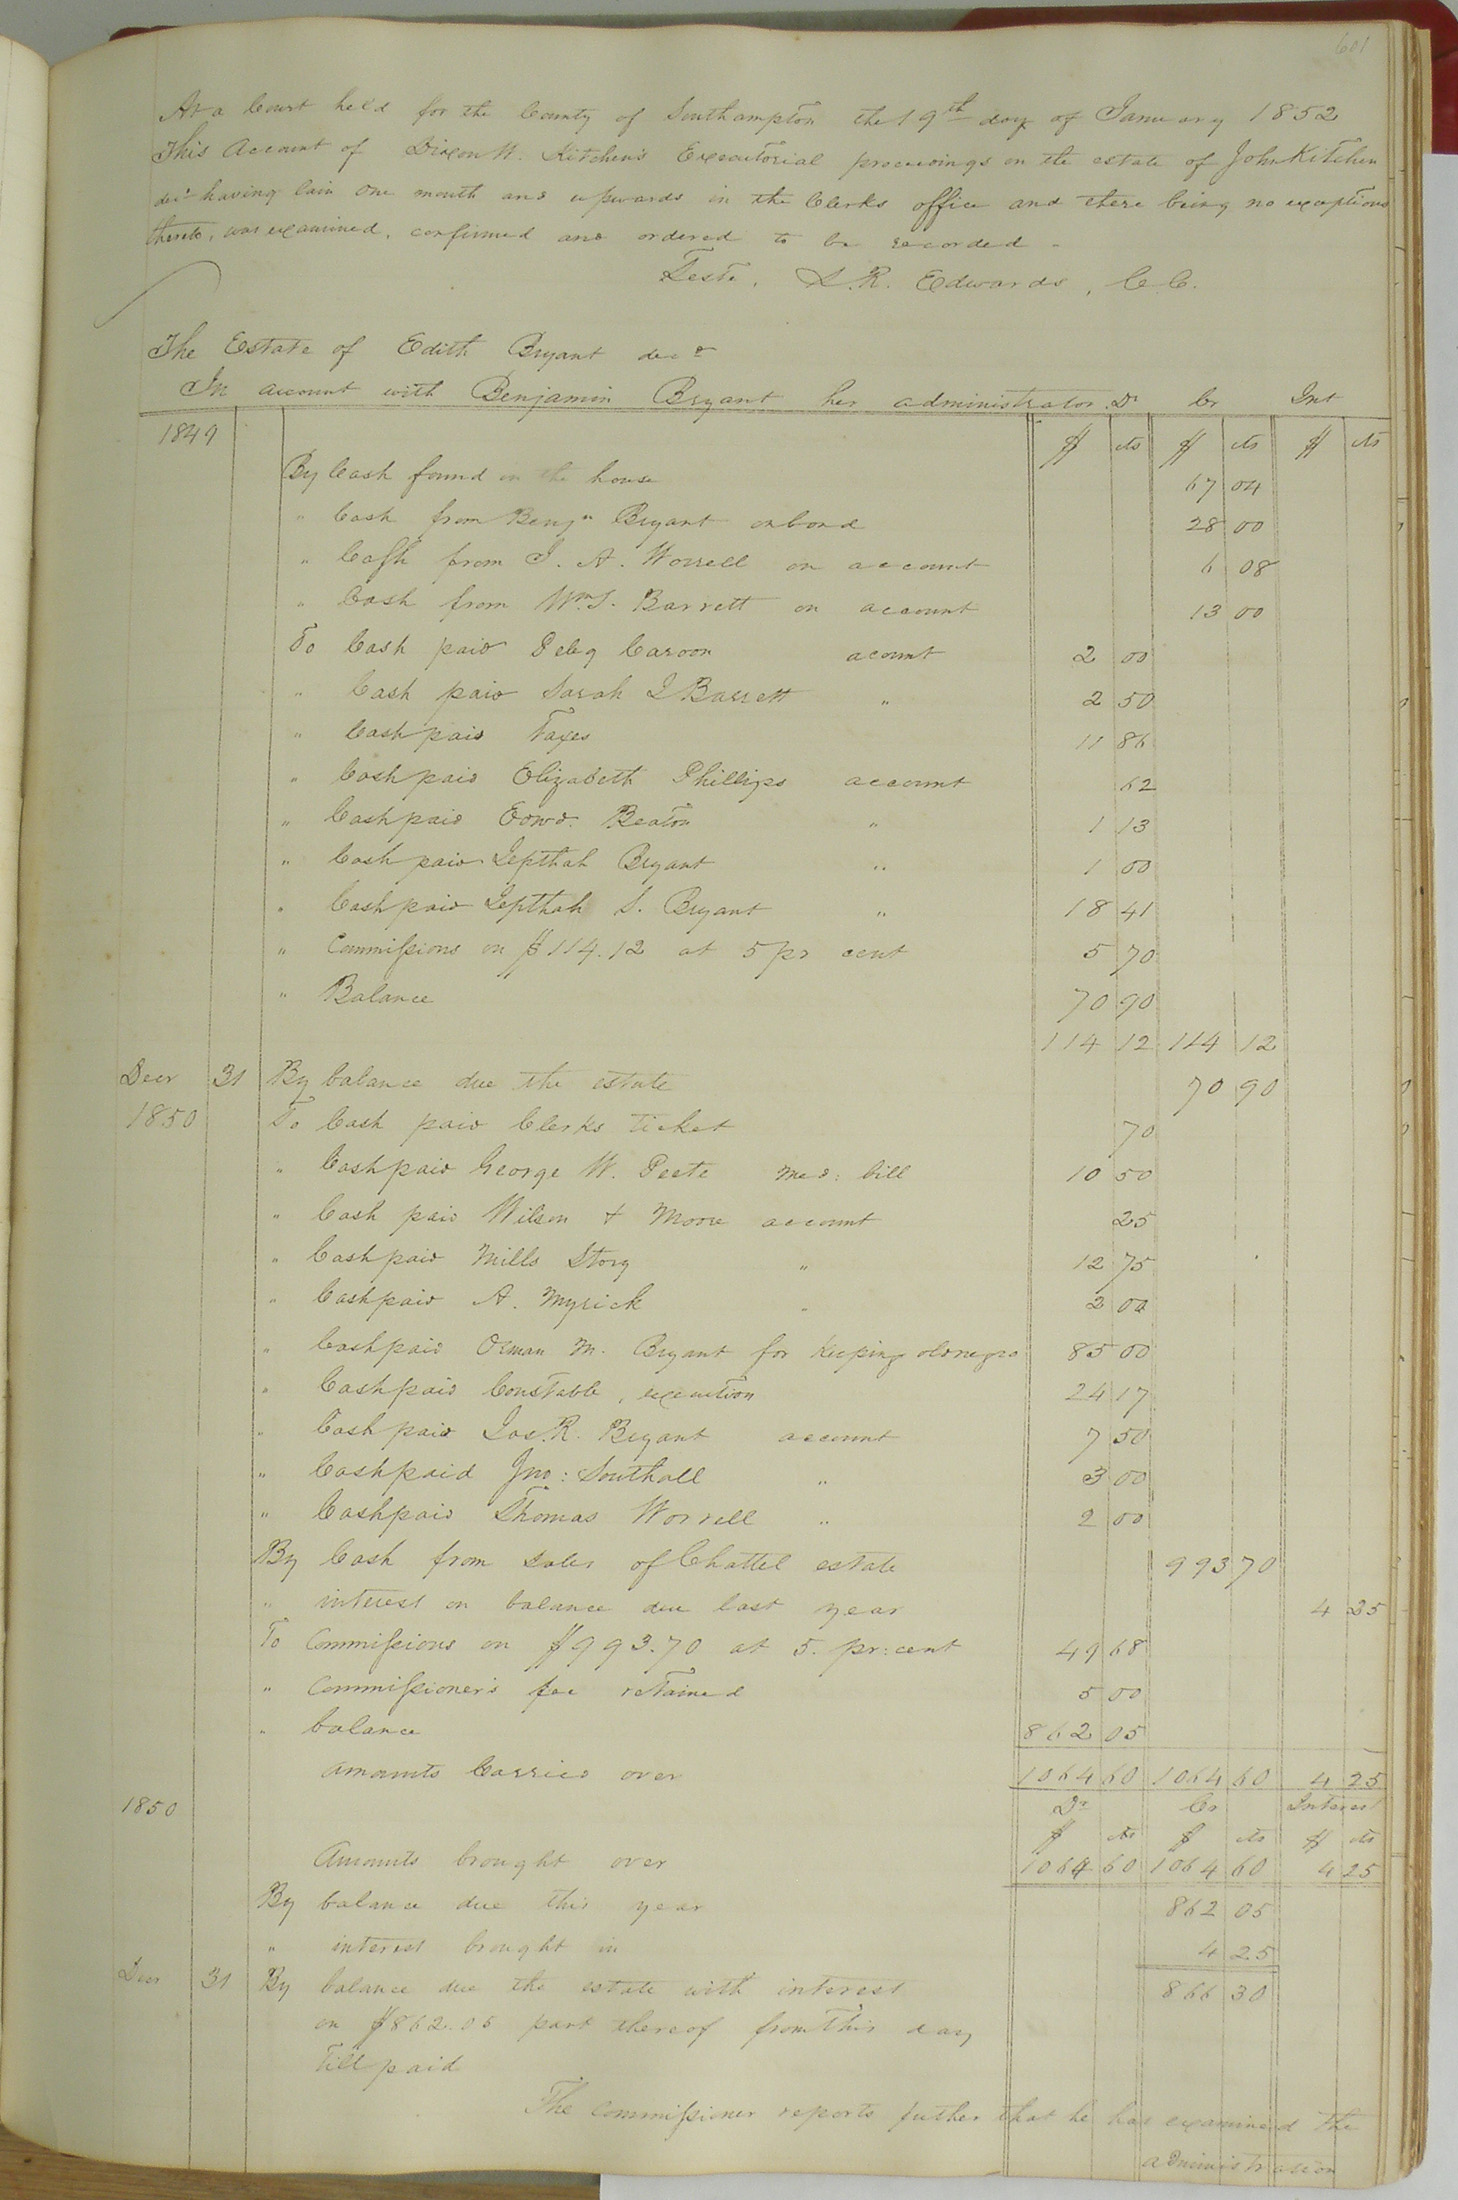 601
At a Court held for the County of Southampton the 19th day of January 1852
This Account of Dixon W. Kitchen's Executorial proceedings on the estate of John Kitchen
decd having lain one month and upwards in the Clerks office and there being no exceptions
thereto, was examined, confirmed and ordered to be recorded -
Teste, L. R. Edwards, C. C.
The Estate of Edith Bryant decd
In account with Benjamin Bryant her administrator Dr Cr Int
1849 $ cts $ cts $ cts
By Cash found in the house 67 04
" Cash from Benjn Bryant on bond 28 00
" Cash from J. A. Worrell on account 6 08
" Cash from Wm S. Barrett on account 13 00
To Cash paid Peleg Caroon acount 2 00
" Cash paid Sarah J Barrett " 2 50
" Cash paid Taxes 11 86
" Cash paid Elizabeth Phillips account 62
" Cash paid Edwd. Beaton " 1 13
" Cash paid Jepthah Bryant " 1 00
" Cash paid Jepthah S. Bryant " 18 41
" Commissions on $114.12 at 5 pr cent 5 70
" Balance 70 90
114 12 114 12
Decr 31 By balance due the estate 70 90
1850 To Cash paid Clerks ticket 70
" Cash paid George W. Peete Med: bill 10 50
" Cash paid Wilson & Moore account 25
" Cash paid Mills Story " 12 75
" Cash paid A. Myrick " 2 00
" Cash paid Orman M. Bryant for keeping old negro 85 00
" Cash paid Constable, execution 24 17
" Cash paid Jas. R. Bryant account 7 50
" Cash paid Jno: Southall " 3 00
" Cash paid Thomas Worrell " 2 00
By Cash from Sales of Chattel estate 993 70
" interest on balance due last year 4 25
To Commissions on $993.70 at 5. pr: cent 49 68
" Commissioner's fee retained 5 00
" balance 862 05
amounts Carried over 1064 60 1064 60 4 25
1850 Dr Cr Interest
$ cts $ cts $ cts
Amounts brought over 1064 60 1064 60 4 25
By balance due this year 862 05
" interest brought in 4 25
Decr 31 By balance due the estate with interest 866 30
on $862.05 part thereof from this day
till paid
The commissioner reports futher that he has examined the
administration